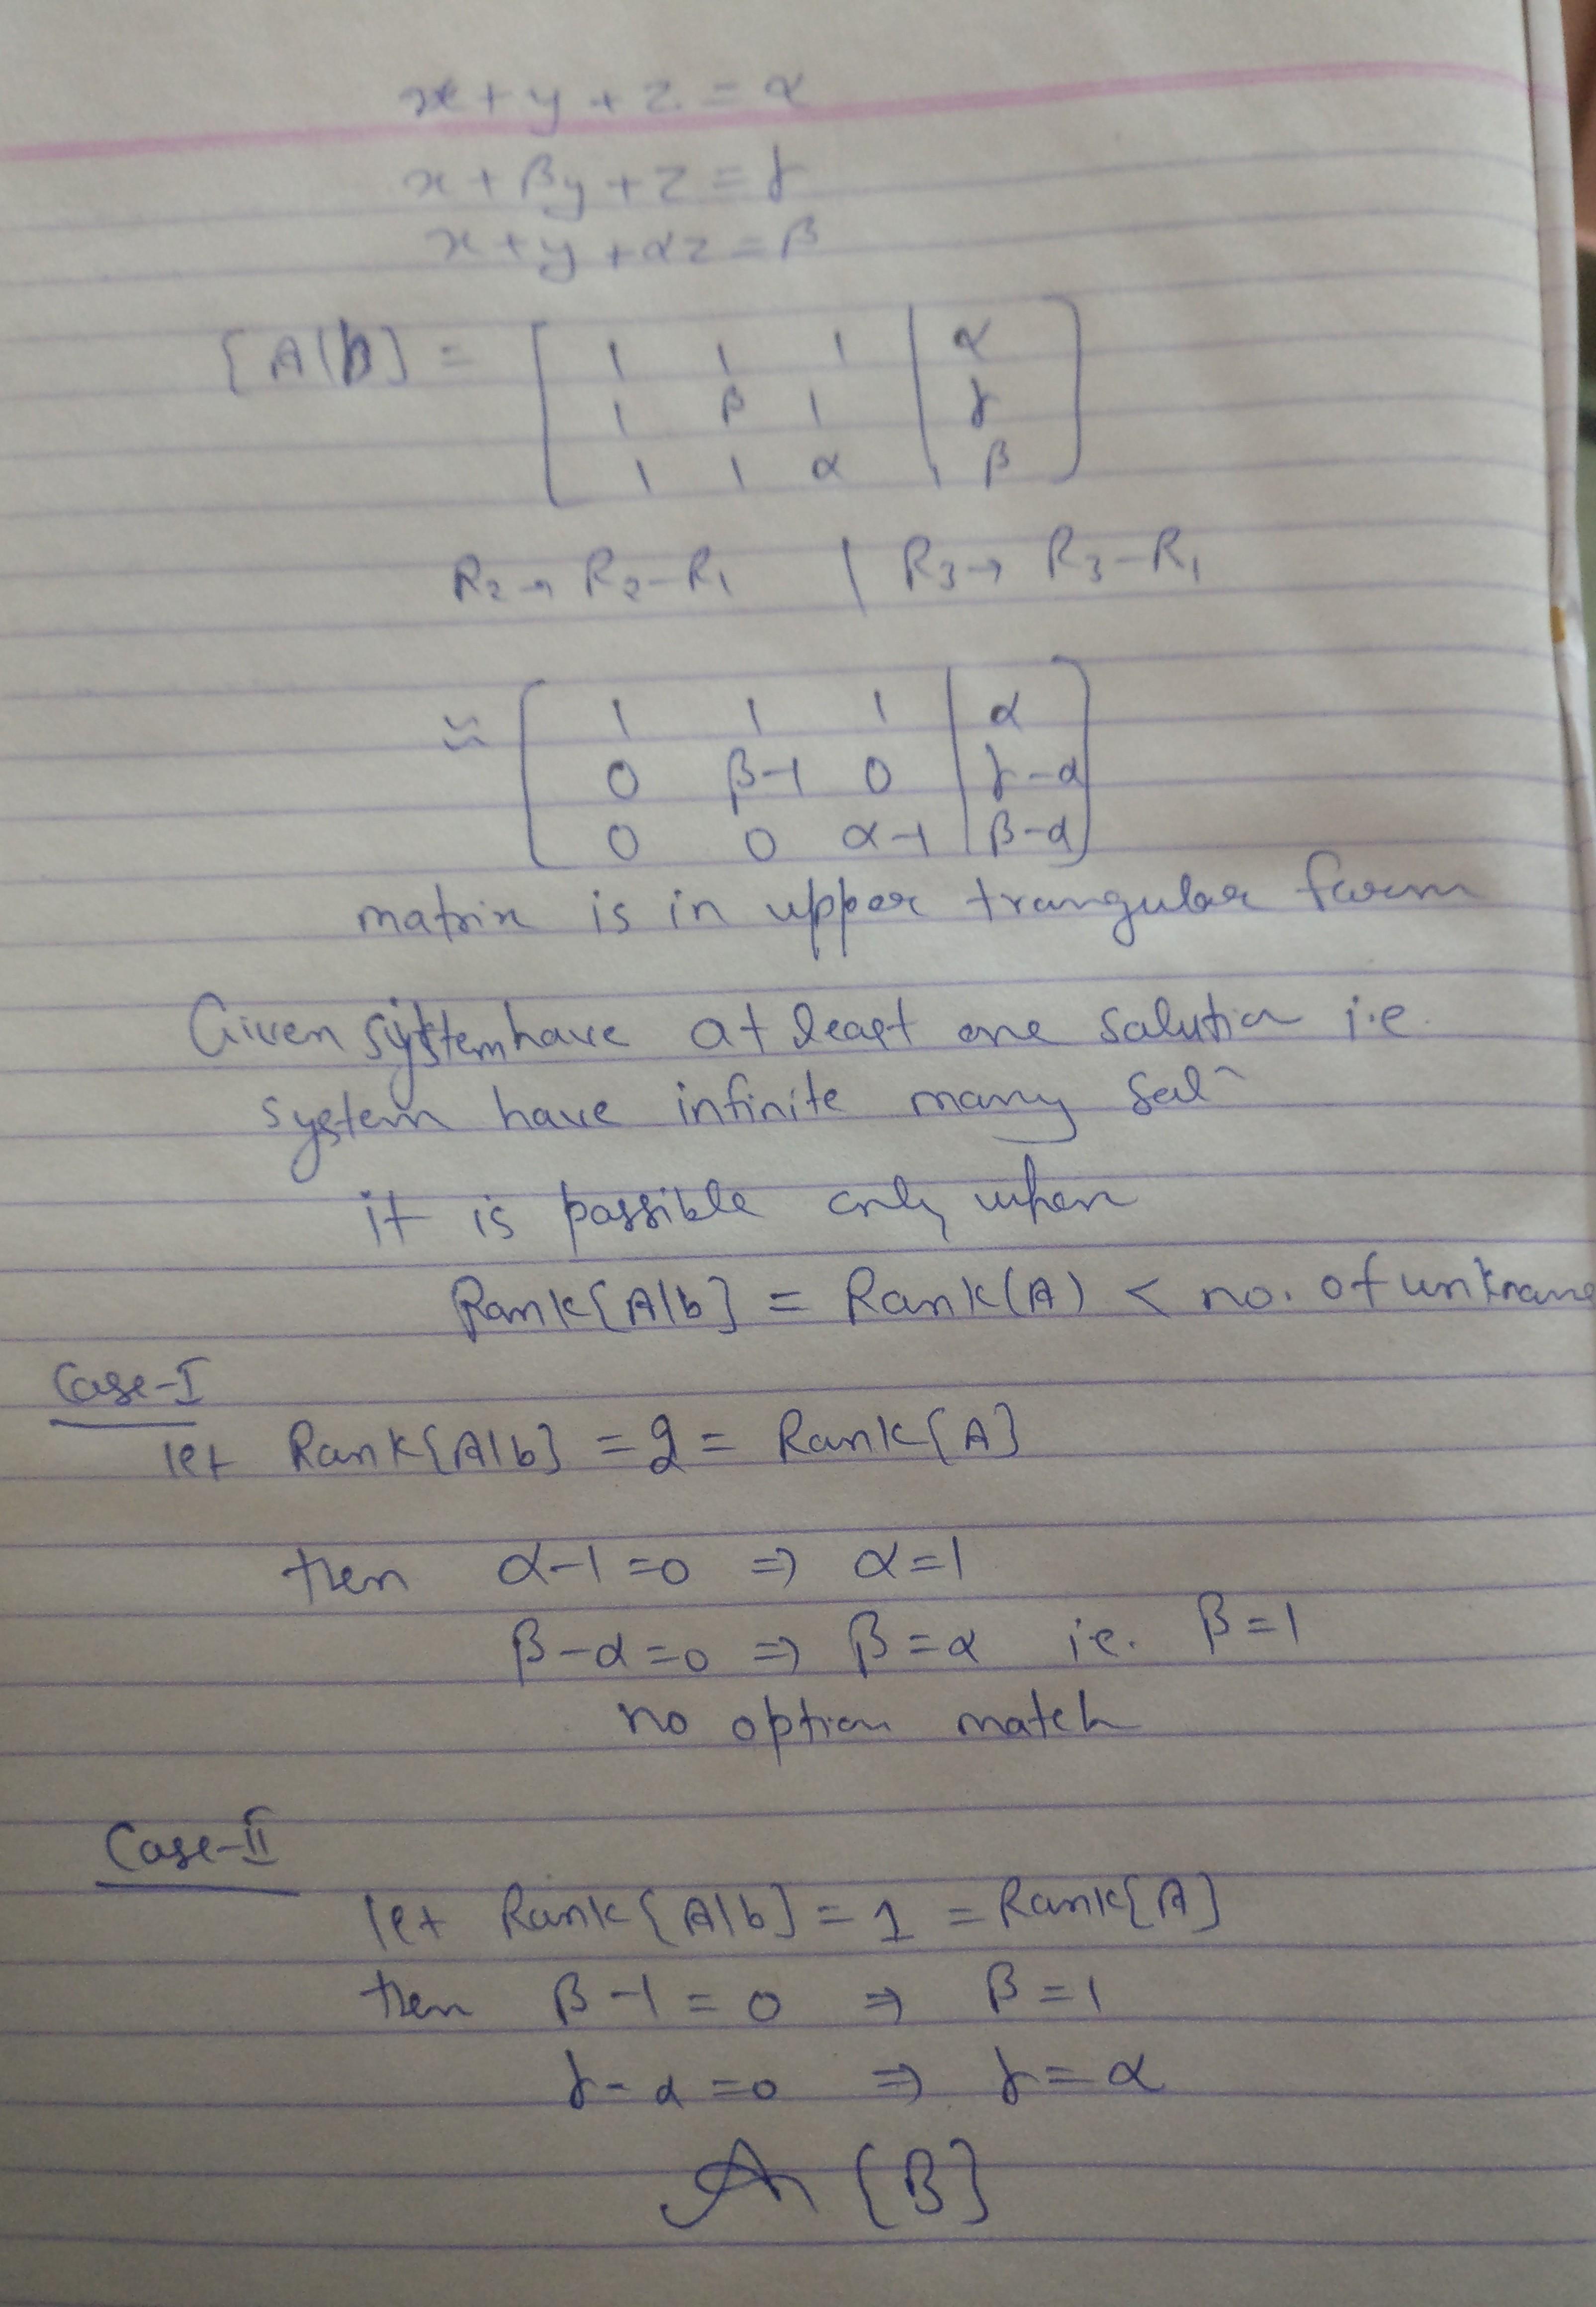 x + y + z = α
x + βy + z = γ
x + y + αz = β
[A|b] = [ 1 1 1 | α ]
1 β 1 | γ
1 1 α | β
R2 → R2 - R1 | R3 → R3 - R1
≈ [ 1 1 1 | α ]
0 β-1 0 | γ-α
0 0 α-1 | β-α
matrix is in upper trangular form
Given system have at least one solution i.e.
system have infinite many sol^n
it is possible only when
Rank[A|b] = Rank(A) < no. of unknown
Case-I
let Rank[A|b] = 2 = Rank[A]
then α-1=0 ⇒ α=1
β-α=0 ⇒ β=α i.e. β=1
no option match
Case-II
let Rank[A|b] = 1 = Rank[A]
then β-1=0 ⇒ β=1
γ-α=0 ⇒ γ=α
An [B]